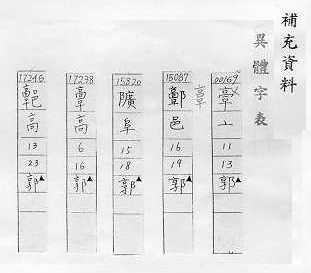 補充資料
異體字表
00169
亠
11
13
郭▲
15087
邑
16
19
郭▲
15820
阜
15
18
郭▲
17238
高
6
16
郭▲
17246
高
13
23
郭▲